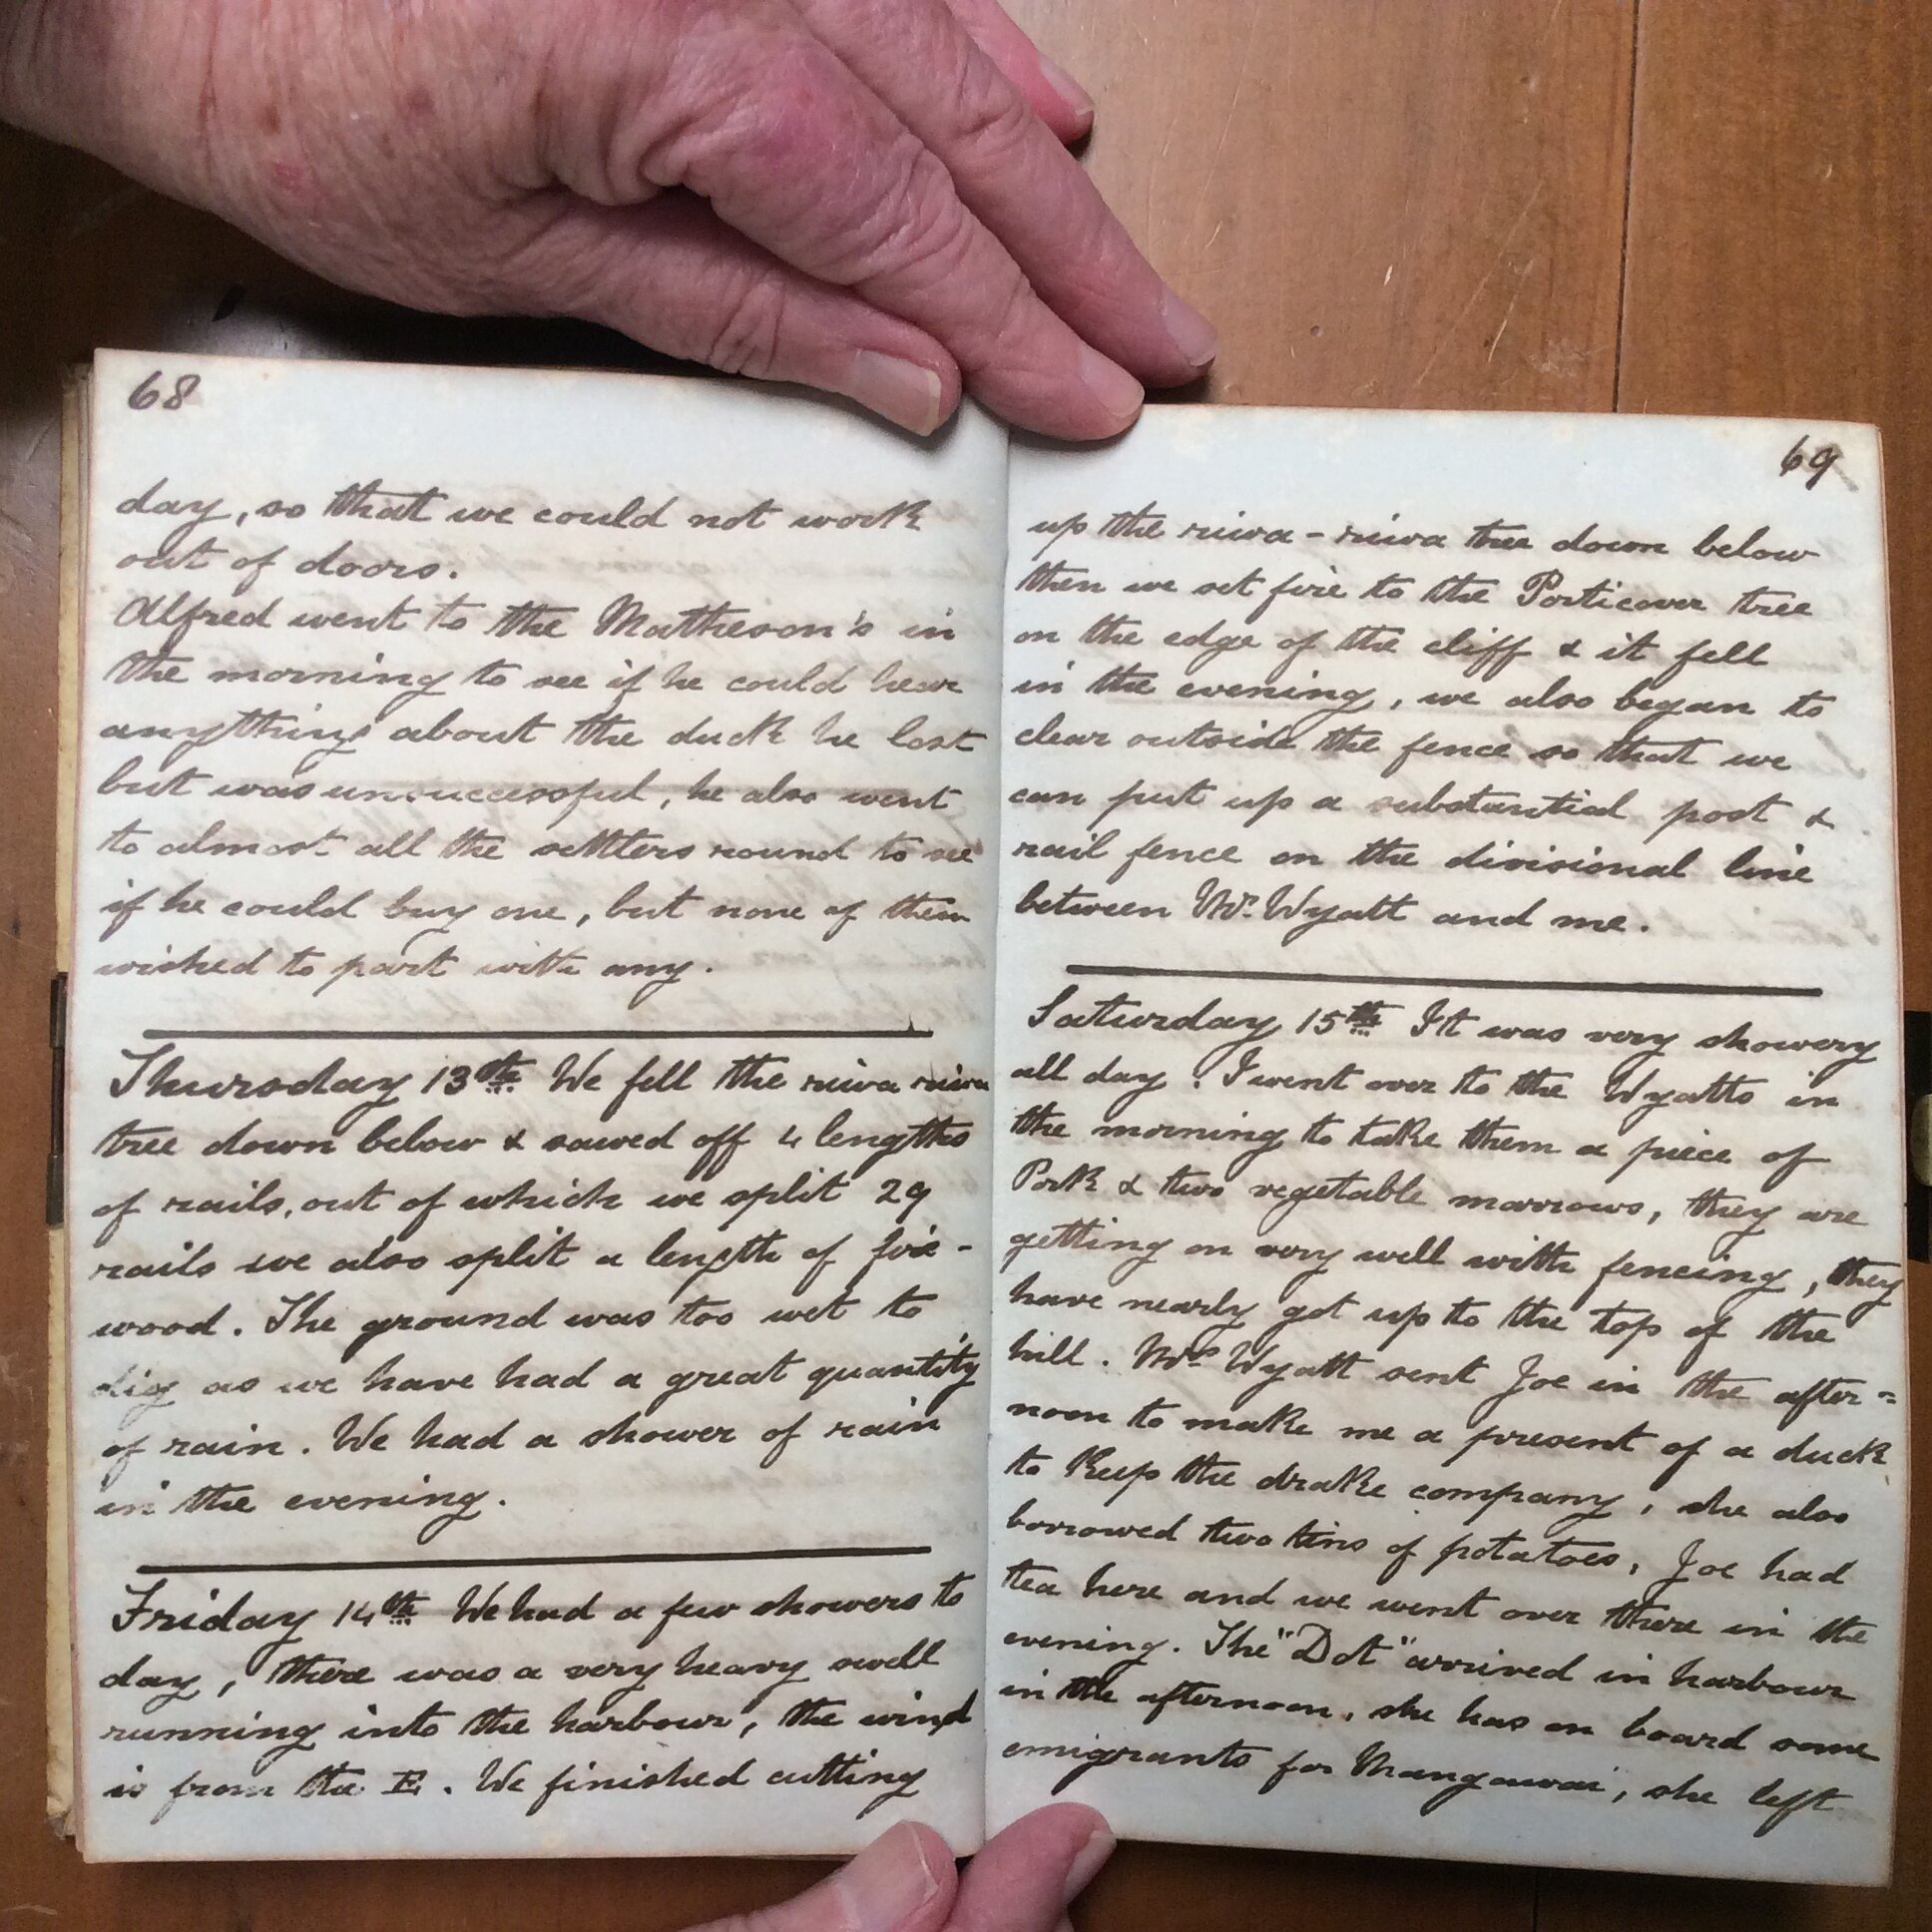 68
day, so that we could not work
out of doors.
Alfred went to the Matheson's in
the morning to see if he could hear
anything about the duck he lost
but was unsuccessful, he also went
to almost all the settlers round to see
if he could buy one, but none of them
wished to part with any.
Thursday 13th We fell the riwa riwa
tree down below & sawed off 4 lengths
of rails, out of which we split 29
rails we also split a length of fire-
wood. The ground was too wet to
dig as we have had a great quantity
of rain. We had a shower of rain
in the evening.
Friday 14th We had a few showers to
day, there was a very heavy swell
running into the harbour, the wind
is from the E. We finished cutting
69
up the riwa-riwa tree down below
then we set fire to the Porticover tree
on the edge of the cliff & it fell
in the evening, we also began to
clear outside the fence so that we
can put up a substantial post &
rail fence on the divisional line
between Mr. Wyatt and me.
Saturday 15th It was very showery
all day. I went over to the Wyatts in
the morning to take them a piece of
Pork & two vegetable marrows, they are
getting on very well with fencing, they
have nearly got up to the top of the
hill. Mrs Wyatt sent Joe in the after=
noon to make me a present of a duck
to keep the drake company, she also
borrowed two tins of potatoes, Joe had
tea here and we went over there in the
evening. The "Dot" arrived in harbour
in the afternoon, she has on board some
emigrants for Mangawai, she left